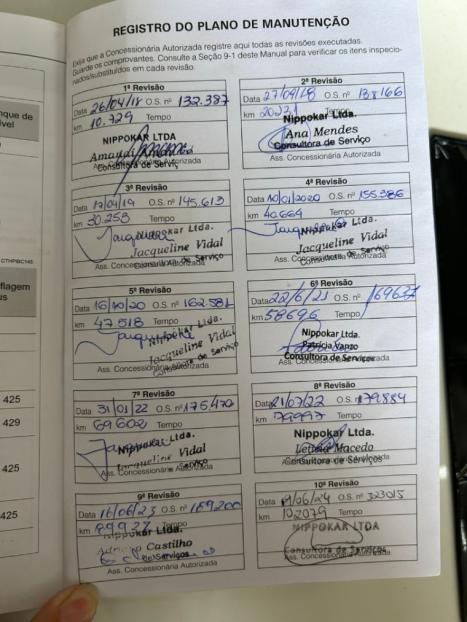 REGISTRO DO PLANO DE MANUTENÇÃO
Exija que a Concessionária Autorizada registre aqui todas as revisões executadas.
Guarde os comprovantes. Consulte a Seção 9-1 deste Manual para verificar os itens inspecio-
nados/substituídos em cada revisão.
1ª Revisão
Data 26/04/18 O.S. nº 132.387
km 10.729 Tempo
NIPPOKAR LTDA
Consultora de Serviço
Ass. Concessionária Autorizada
2ª Revisão
Data 27/09/18 O.S. nº 138166
km 20231 Tempo
Nippokar Ltda.
Ana Mendes
Consultora de Serviço
Ass. Concessionária Autorizada
3ª Revisão
Data 17/04/19 O.S. nº 145.613
km 30.253 Tempo
Nippokar Ltda.
Jacqueline Vidal
Consultora de Serviço
Ass. Concessionária Autorizada
4ª Revisão
Data 10/01/2020 O.S. nº 155.386
km 40.664 Tempo
Nippokar Ltda.
Jacqueline Vidal
Consultora de Serviço
Ass. Concessionária Autorizada
5ª Revisão
Data 16/10/20 O.S. nº 162.581
km 47.518 Tempo
Nippokar Ltda.
Jacqueline Vidal
Consultora de Serviço
Ass. Concessionária Autorizada
6ª Revisão
Data 22/6/21 O.S. nº 169637
km 58696 Tempo
Nippokar Ltda.
Consultora de Serviços
Ass. Concessionária Autorizada
7ª Revisão
Data 31/01/22 O.S. nº 175470
km 69602 Tempo
Nippokar Ltda.
Jacqueline Vidal
Ass. Concessionária Autorizada
8ª Revisão
Data 21/07/22 O.S. nº 179884
km 79997 Tempo
Nippokar Ltda.
Letícia Macedo
Consultora de Serviços
Ass. Concessionária Autorizada
9ª Revisão
Data 16/06/23 O.S. nº 189200
km 89927 Tempo
Nippokar Ltda.
Castilho
Serviços
Ass. Concessionária Autorizada
10ª Revisão
Data /06/24 O.S. nº 323015
km 102079 Tempo
NIPPOKAR LTDA
Consultora de Serviços
Ass. Concessionária Autorizada
nque de
vel
CTHPBC145
flagem
us
425
429
425
425